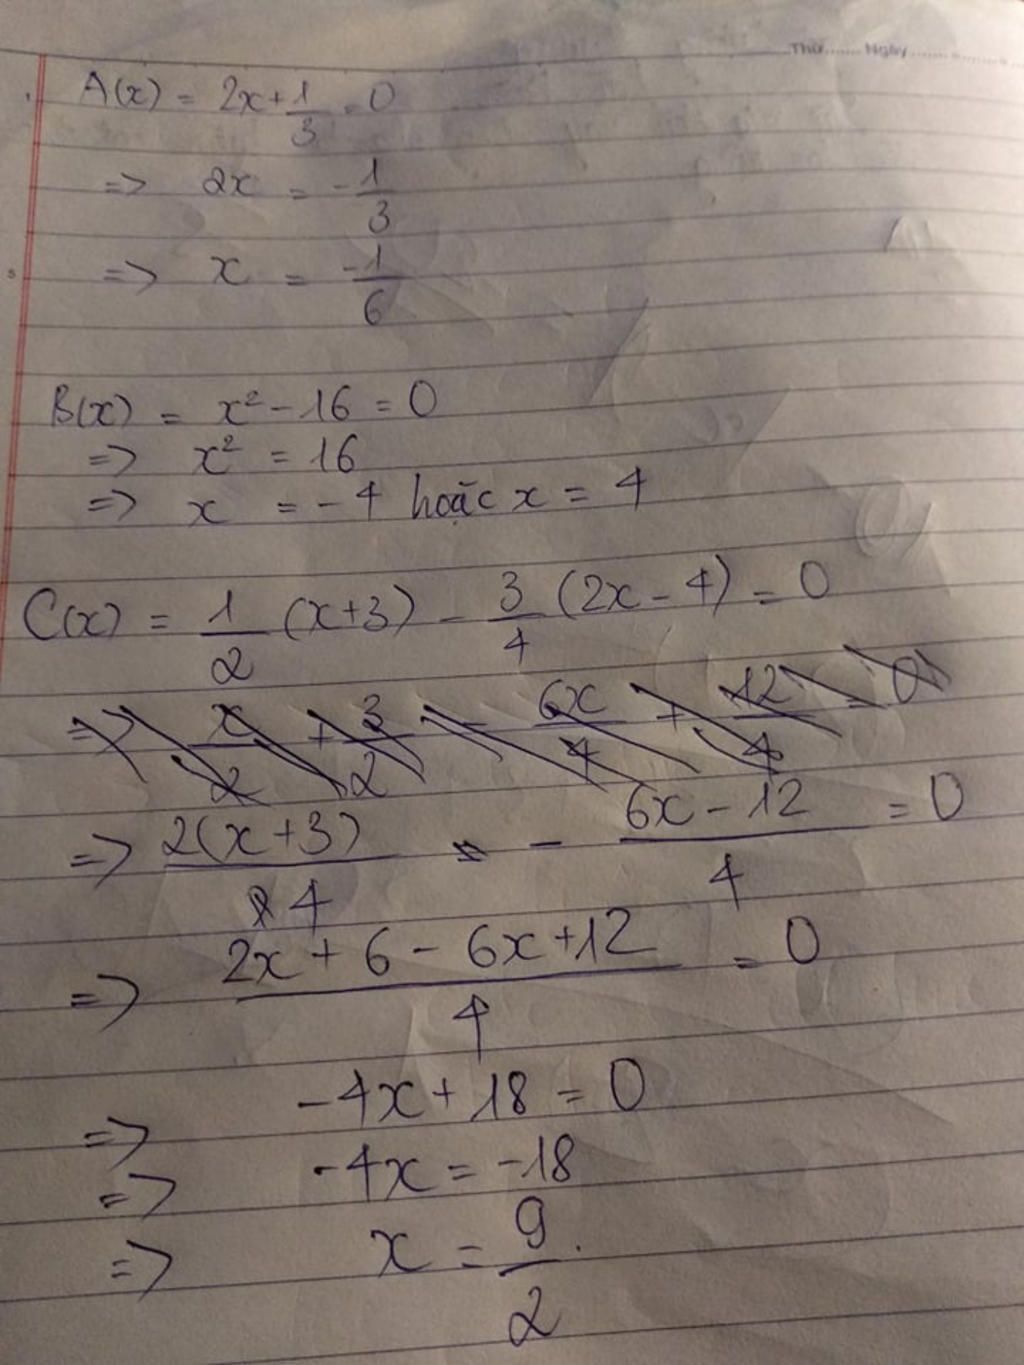 Thứ....... Ngày ..............
A(x) = 2x + 1/3 = 0
=> 2x = -1/3
=> x = -1/6
B(x) = x² - 16 = 0
=> x² = 16
=> x = -4 hoặc x = 4
C(x) = 1/2 (x+3) - 3/4 (2x - 4) = 0
=> x/2 + 3/2 - 6x/4 + 12/4 = 0
=> 2(x+3)/4 - 6x - 12/4 = 0
=> 2x + 6 - 6x + 12/4 = 0
=> -4x + 18 = 0
=> -4x = -18
=> x = 9/2.